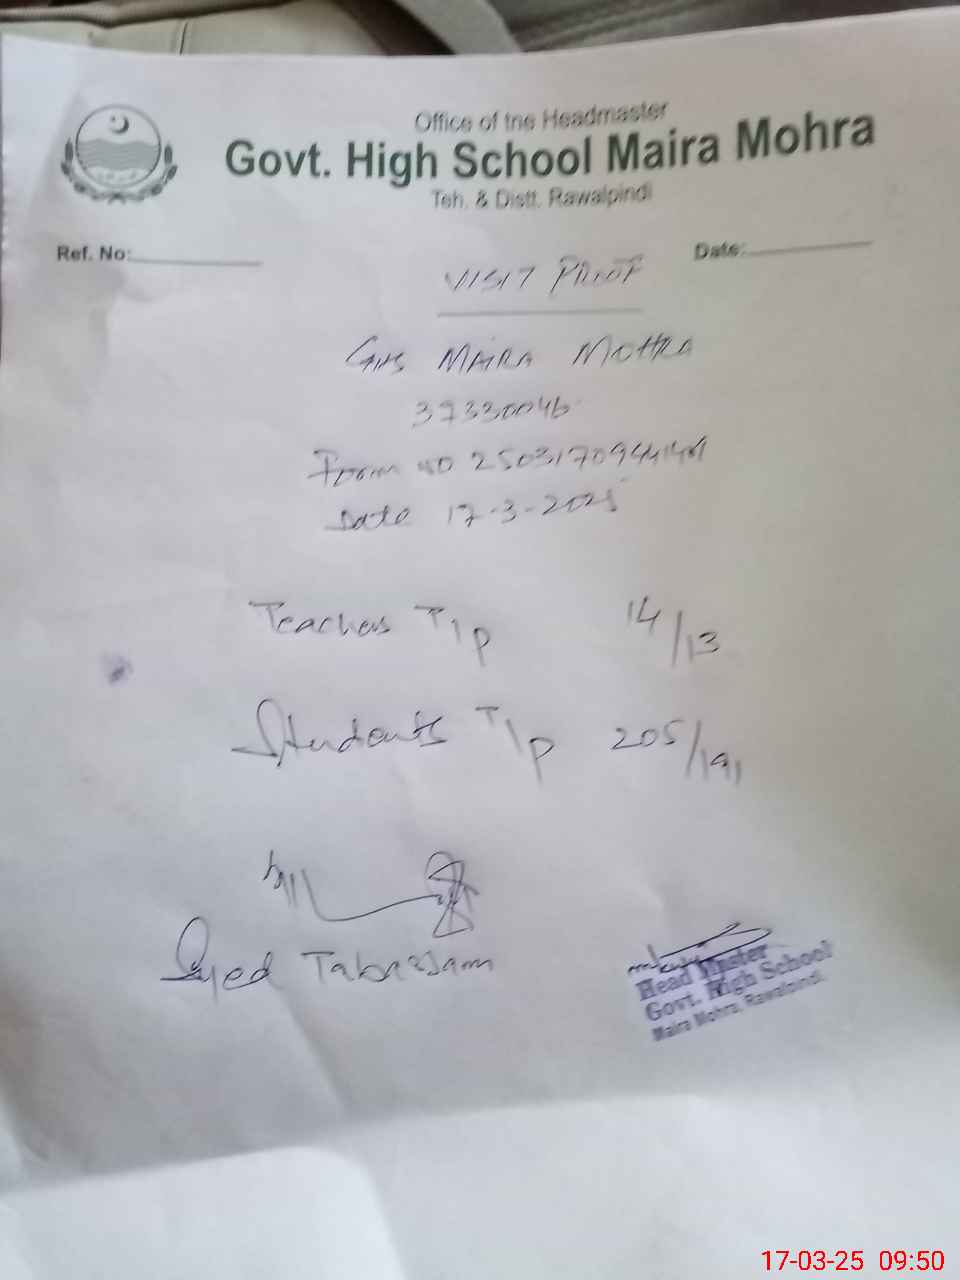 Office of the Headmaster
Govt. High School Maira Mohra
Teh. & Distt. Rawalpindi
Ref. No:
Date:
VISIT PROOF
GHS MAIRA MOHRA
37330046
Form no 250317094414
Date 17-3-2025
Teachers T/p 14/13
Students T/p 205/191
Syed Tabassam
Head Master
Govt. High School
Maira Mohra, Rawalpindi.
17-03-25 09:50